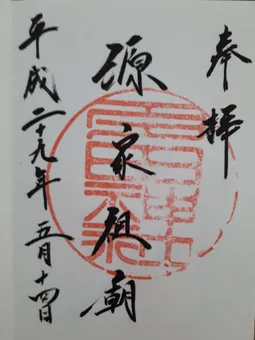 奉拝
源家祖廟
平成二十九年 五月十四日